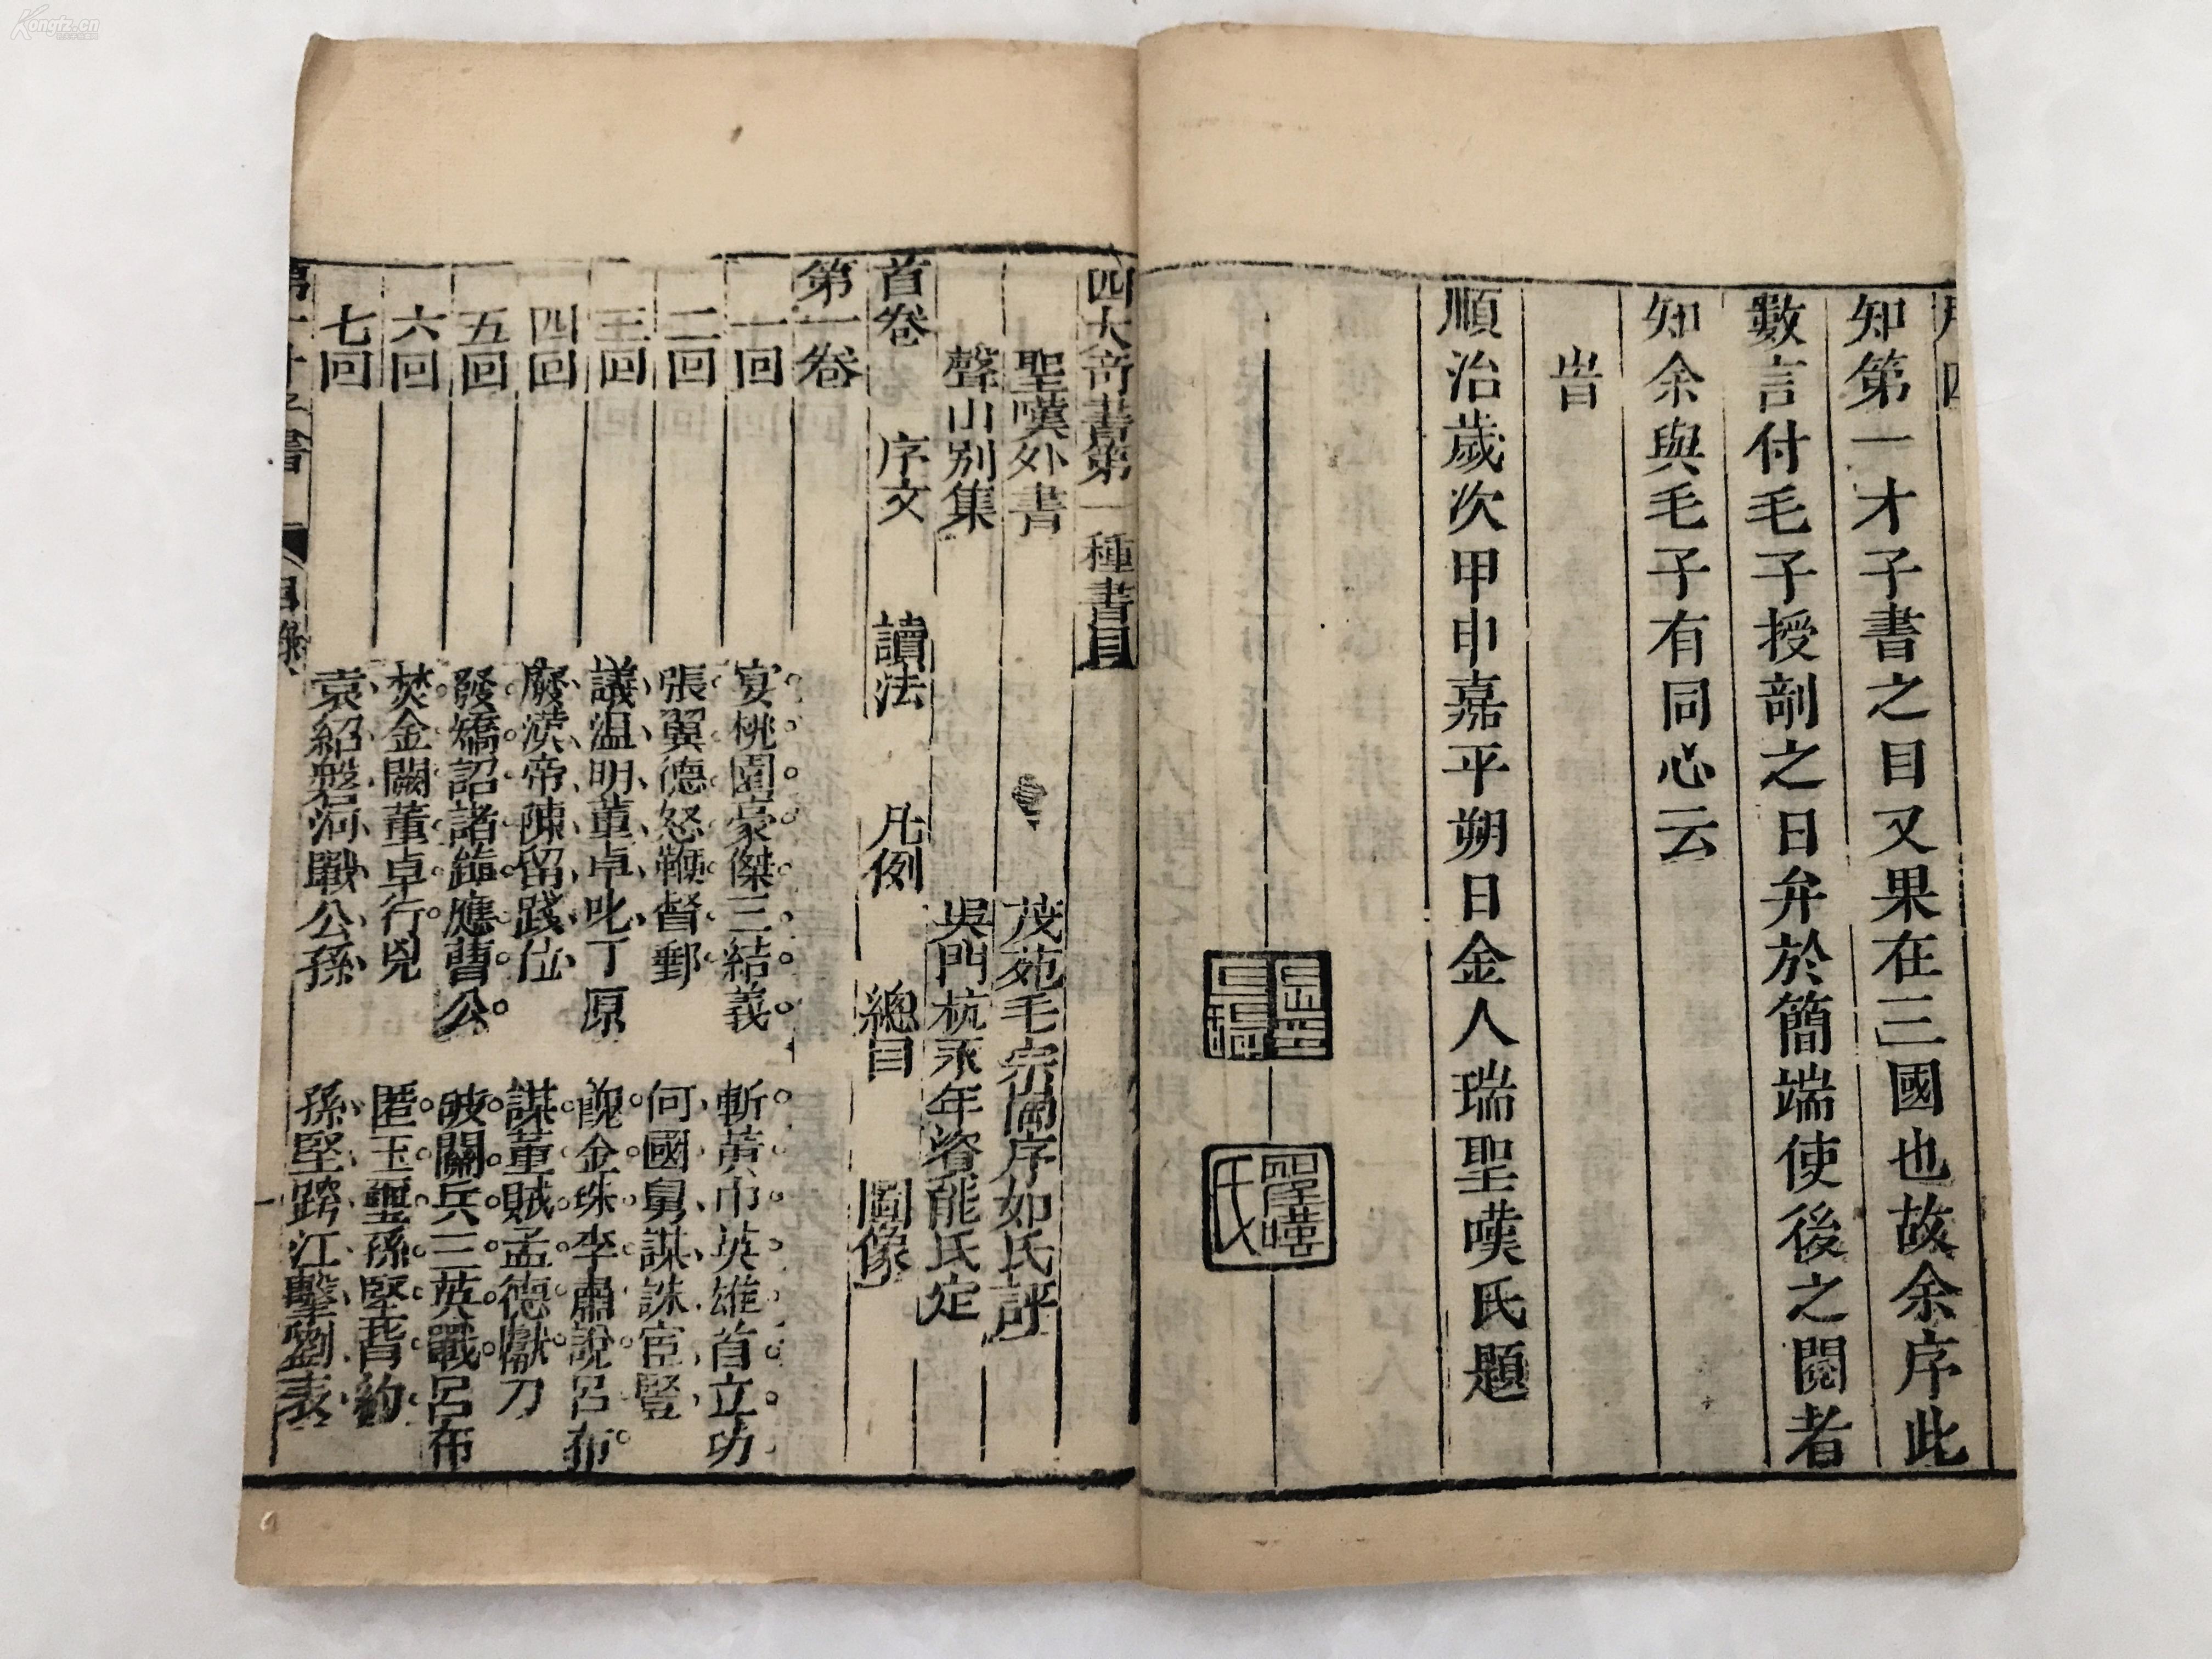 知第一才子書之目又果在三國也故余序此
數言付毛子授剞之日弁於簡端使後之閱者
知余與毛子有同心云
旹
順治歲次甲申嘉平朔日金人瑞聖嘆氏題
聖嘆氏
四大奇書第一種書目
聖嘆外書 茂苑毛宗崗序始氏評
聲山別集 吳門杭永年資能氏定
首卷 序文 讀法 凡例 總目 圖像
第一卷
一回 宴桃園豪傑三結義 斬黃巾英雄首立功
二回 張翼德怒鞭督郵 何國舅謀誅宦豎
三回 議溫明董卓叱丁原 餽金珠李肅說呂布
四回 廢漢帝陳留踐位 謀董賊孟德獻刀
五回 發矯詔諸鎮應曹公 破關兵三英戰呂布
六回 焚金闕董卓行兇 匿玉璽孫堅背約
七回 袁紹磐河戰公孫 孫堅跨江擊劉表
第一才子書 目錄 一
Kongfz.cn